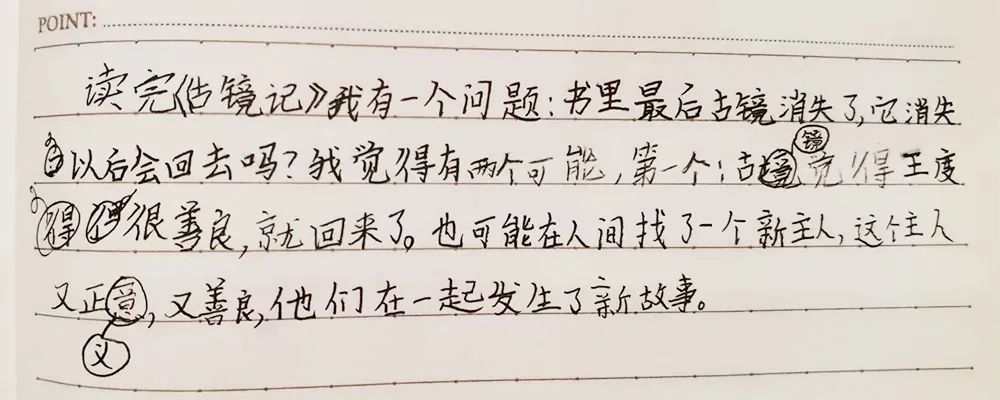 POINT:
读完《古镜记》我有一个问题：书里最后古镜消失了，它消失
以后会回去吗？我觉得有两个可能，第一个：古镜觉得王度
得很善良，就回来了。也可能在人间找了一个新主人，这个主人
又正意，又善良，他们在一起发生了新故事。
义